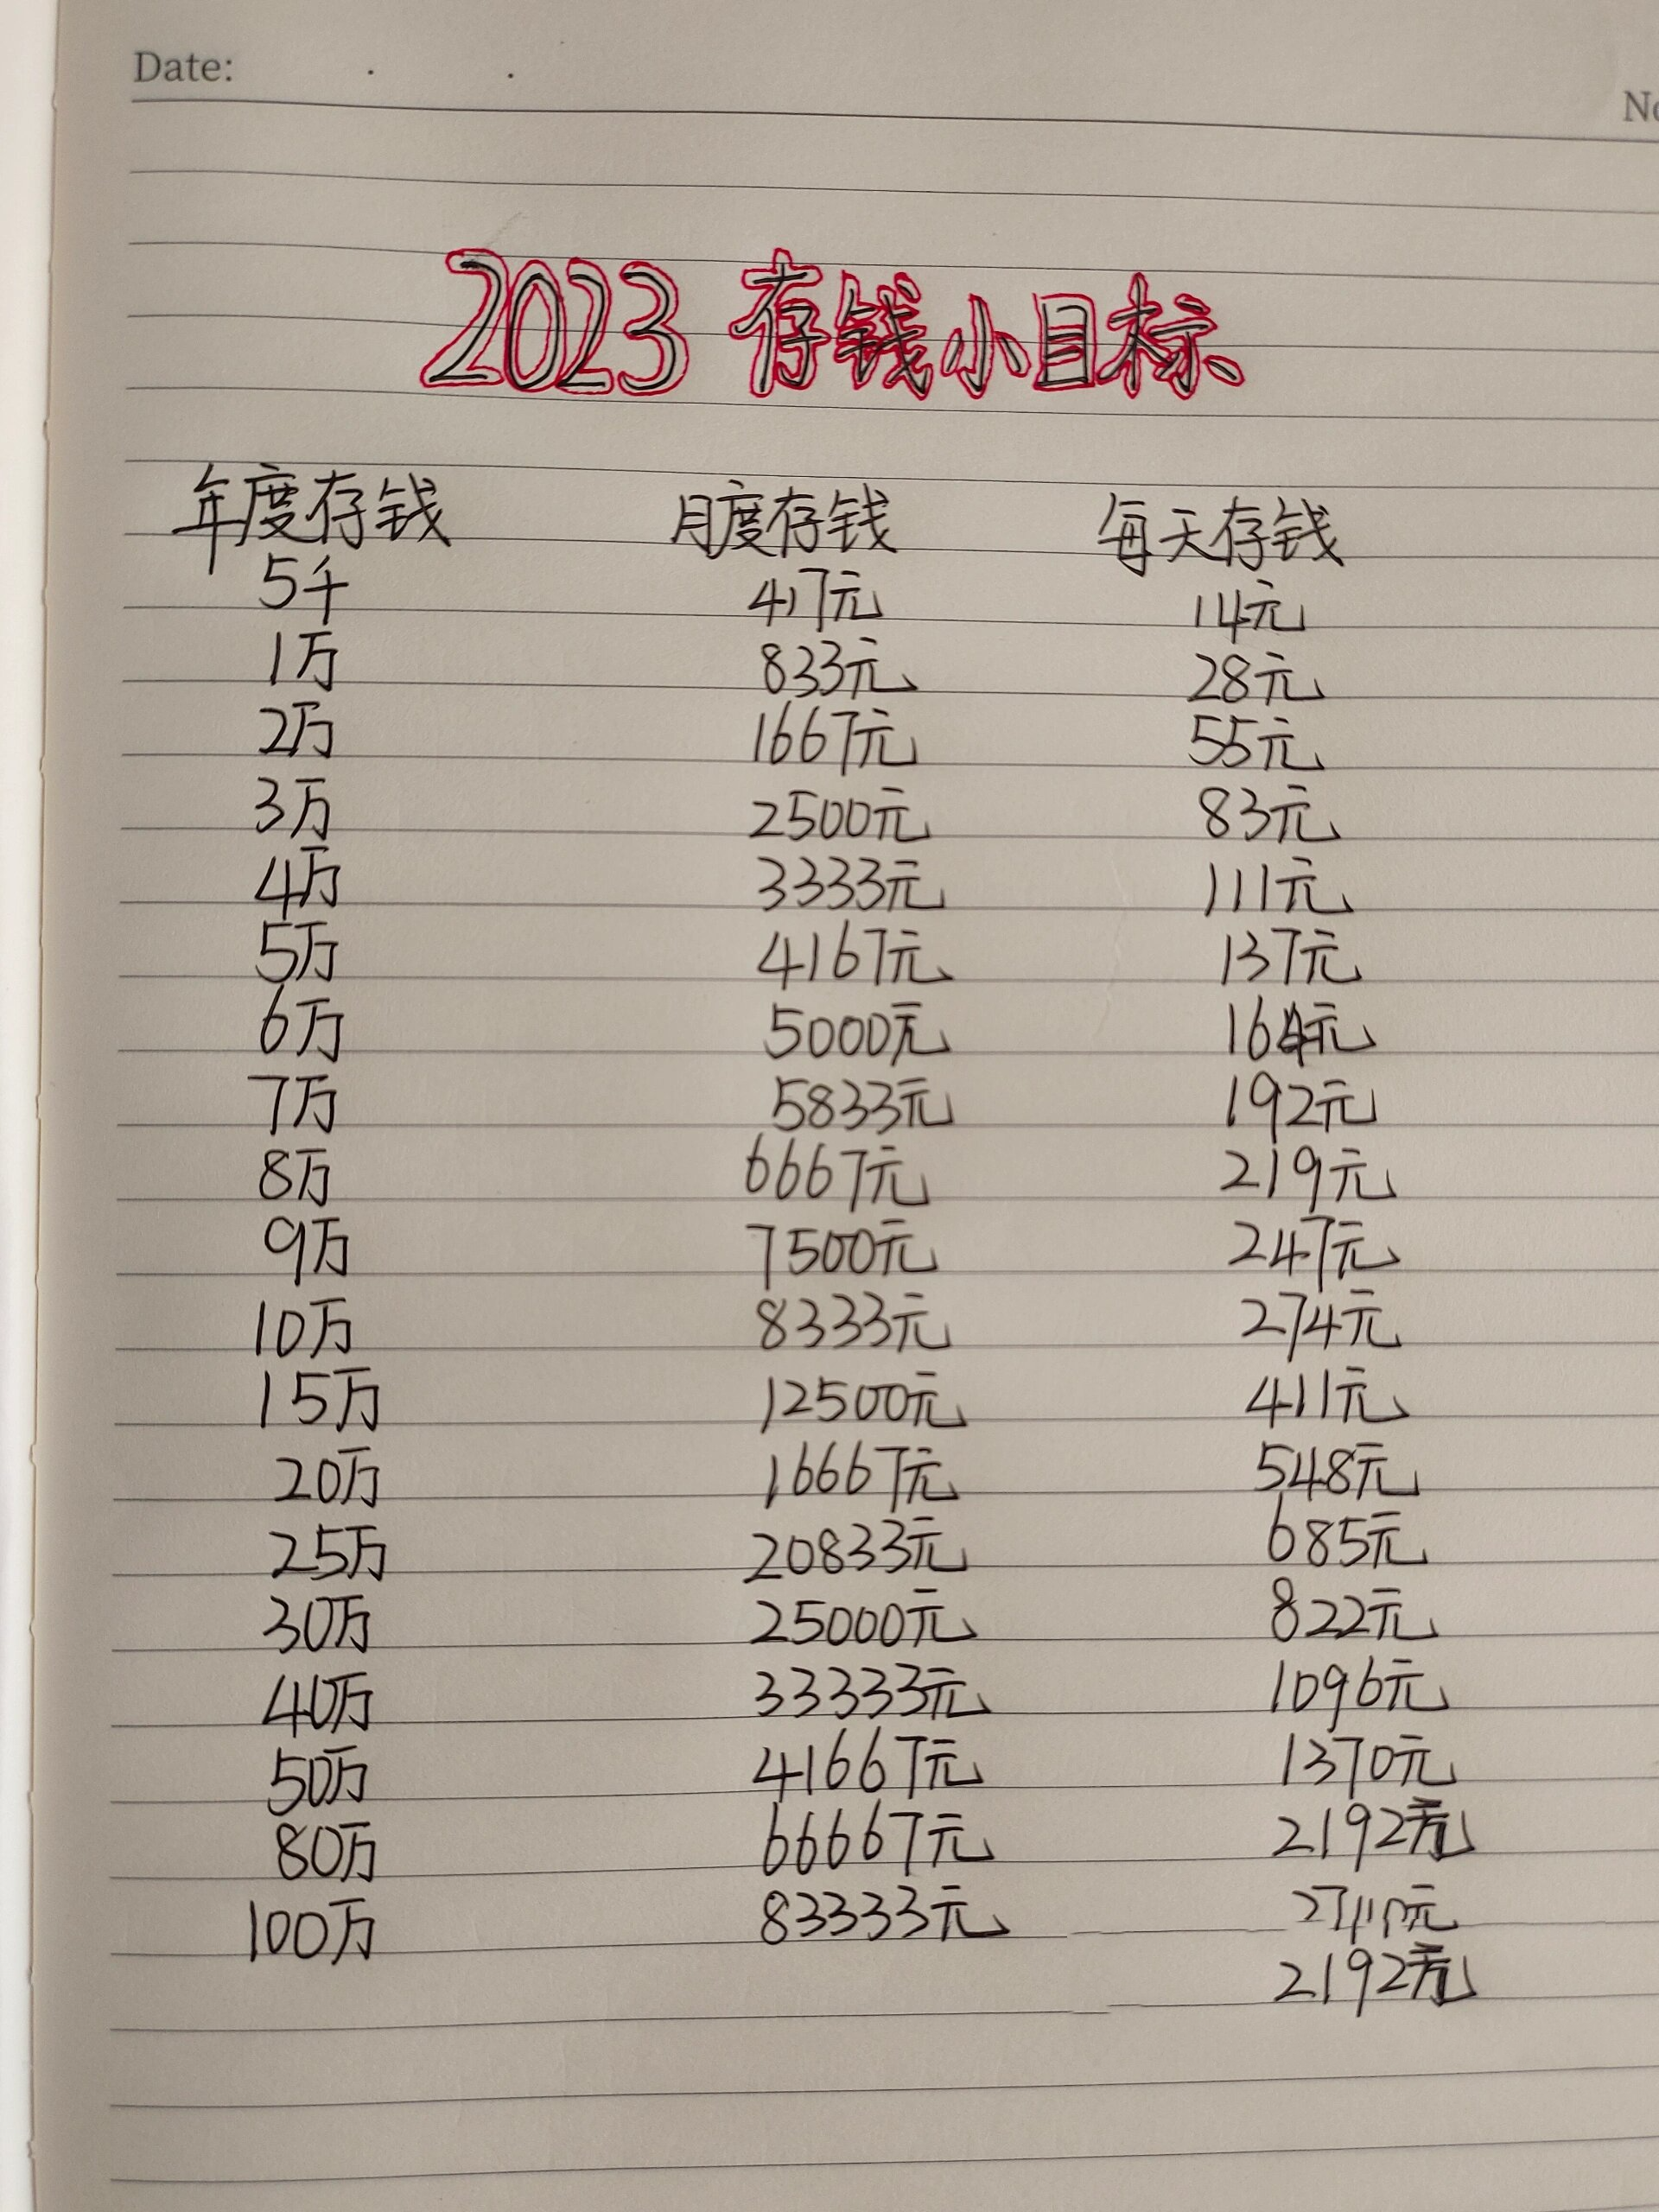 Date:
2023 存钱小目标
年度存钱 月度存钱 每天存钱
5千 417元 14元
1万 833元 28元
2万 1667元 55元
3万 2500元 83元
4万 3333元 111元
5万 4167元 137元
6万 5000元 164元
7万 5833元 192元
8万 6667元 219元
9万 7500元 247元
10万 8333元 274元
15万 12500元 411元
20万 16667元 548元
25万 20833元 685元
30万 25000元 822元
40万 33333元 1096元
50万 41667元 1370元
80万 66667元 2192元
100万 83333元
2192元